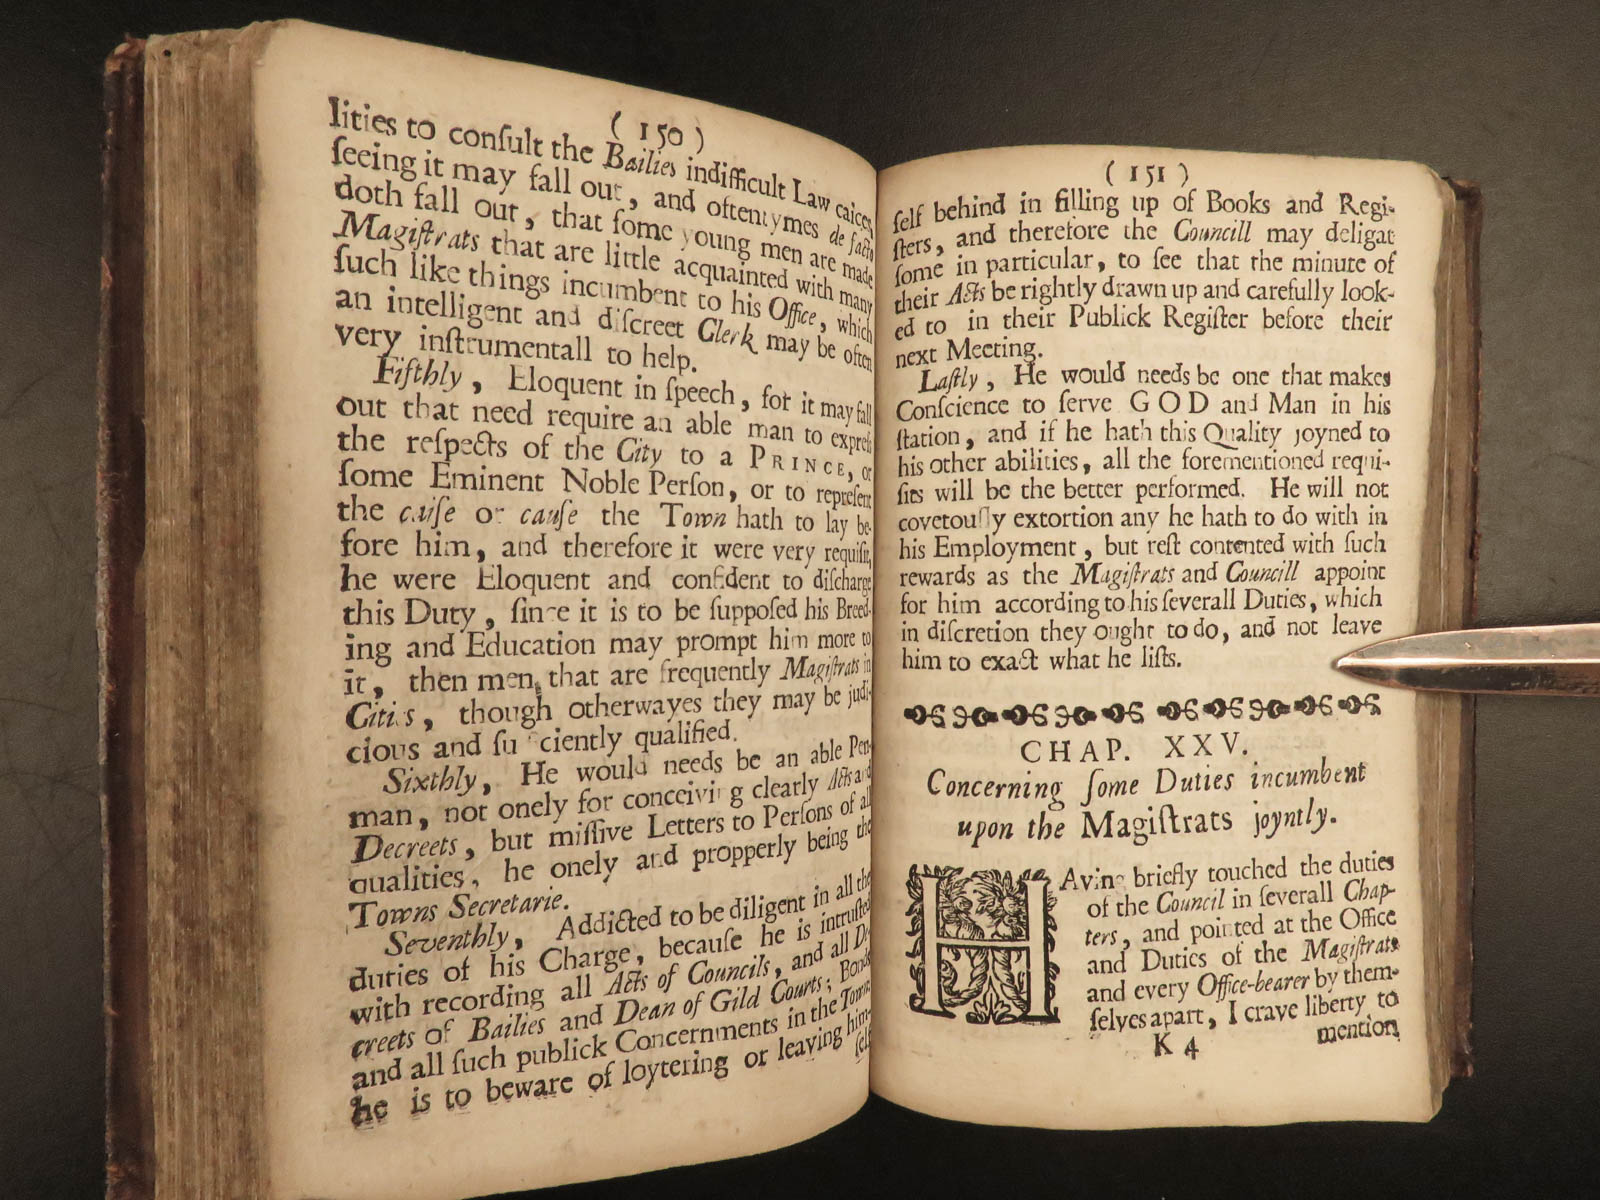 ( 150 )
lities to conſult the Bailies indifficult Law caices,
ſeeing it may fall out, and oftentymes de facto
doth fall out, that ſome young men are made
Magiſtrats that are little acquainted with many
ſuch like things incumbent to his Office, which
an intelligent and diſcreet Clerk may be often
very inſtrumentall to help.
Fifthly, Eloquent in ſpeech, for it may fall
out that need require an able man to expreſs
the reſpects of the City to a PRINCE, or
ſome Eminent Noble Perſon, or to repreſent
the caiſe or cauſe the Town hath to lay be-
fore him, and therefore it were very requiſit,
he were Eloquent and confident to diſcharge
this Duty, ſince it is to be ſuppoſed his Breed-
ing and Education may prompt him more to
it, then men that are frequently Magiſtrats in
Cities, though otherwayes they may be judi-
cious and ſufficiently qualified.
Sixthly, He would needs be an able Pen-
man, not onely for conceiving clearly Acts and
Decreets, but miſſive Letters to Perſons of all
qualities, he onely and propperly being the
Towns Secretarie.
Seventhly, Addicted to be diligent in all the
duties of his Charge, becauſe he is intruſted
with recording all Acts of Councils, and all De-
creets of Bailies and Dean of Gild Courts; Bonds
and all ſuch publick Concernments in the Town,
he is to beware of loytering or leaving him-
ſelf
( 151 )
ſelf behind in filling up of Books and Regi-
ſters, and therefore the Councill may deligat
ſome in particular, to ſee that the minute of
their Acts be rightly drawn up and carefully look-
ed to in their Publick Regiſter before their
next Meeting.
Laſtly, He would needs be one that makes
Conſcience to ſerve GOD and Man in his
ſtation, and if he hath this Quality joyned to
his other abilities, all the forementioned requi-
ſits will be the better performed. He will not
covetouſly extortion any he hath to do with in
his Employment, but reſt contented with ſuch
rewards as the Magiſtrats and Councill appoint
for him according to his ſeverall Duties, which
in diſcretion they ought to do, and not leave
him to exact what he liſts.
CHAP. XXV.
Concerning ſome Duties incumbent
upon the Magiſtrats joyntly.
HAving briefly touched the duties
of the Council in ſeverall Chap-
ters, and pointed at the Office
and Duties of the Magiſtrats
and every Office-bearer by them-
ſelves apart, I crave liberty to
K 4 mention